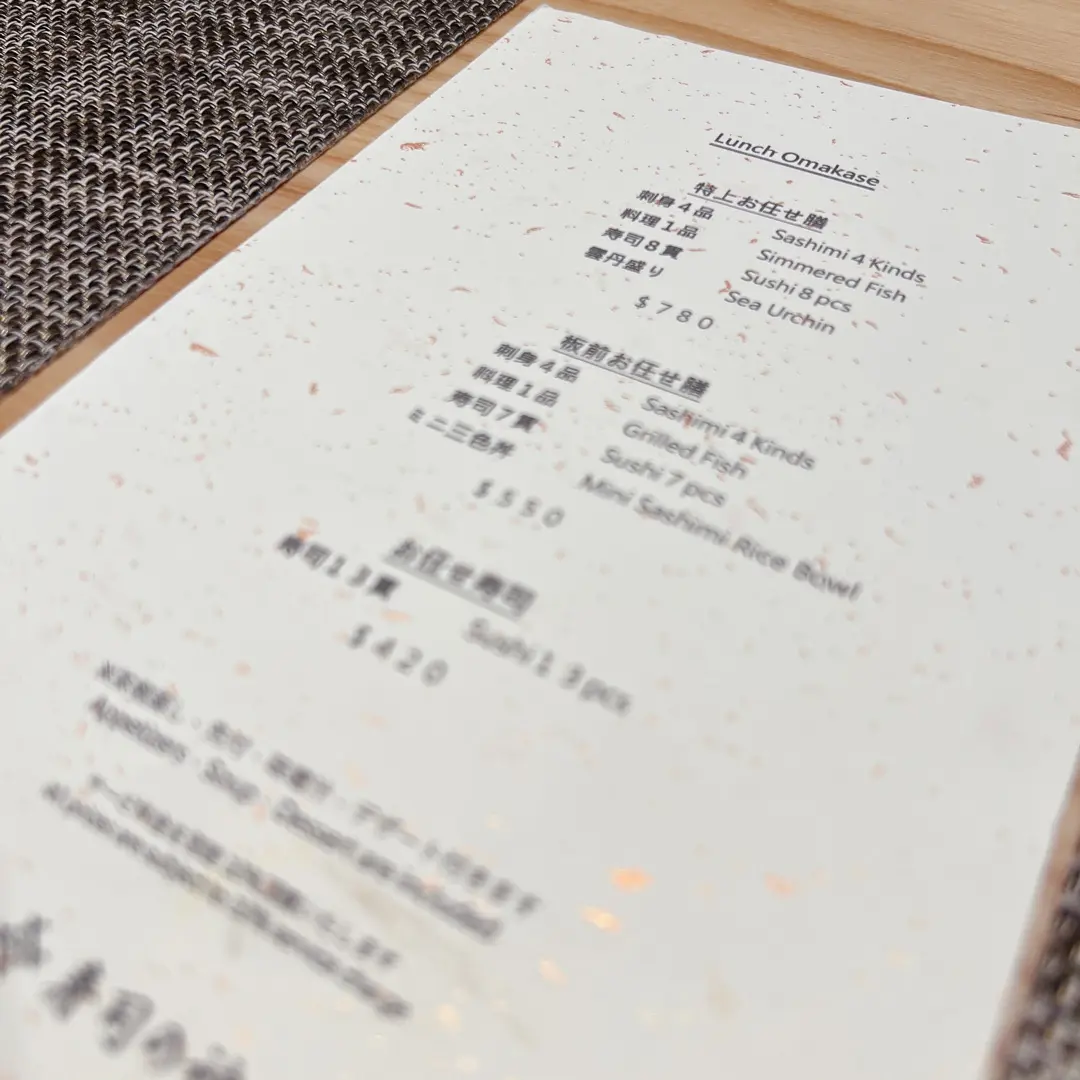 Lunch Omakase
特上お任せ膳
刺身4品 Sashimi 4 Kinds
料理1品 Simmered Fish
寿司8貫 Sushi 8 pcs
雲丹盛り Sea Urchin
$780
板前お任せ膳
刺身4品 Sashimi 4 Kinds
料理1品 Grilled Fish
寿司7貫 Sushi 7 pcs
ミニ三色丼 Mini Sashimi Rice Bowl
$550
お任せ寿司
寿司13貫 Sushi 13 pcs
$420
・デザート付きます
Appetizers · Soup · Dessert are included
All prices are subject to 10% service charge
寿司の